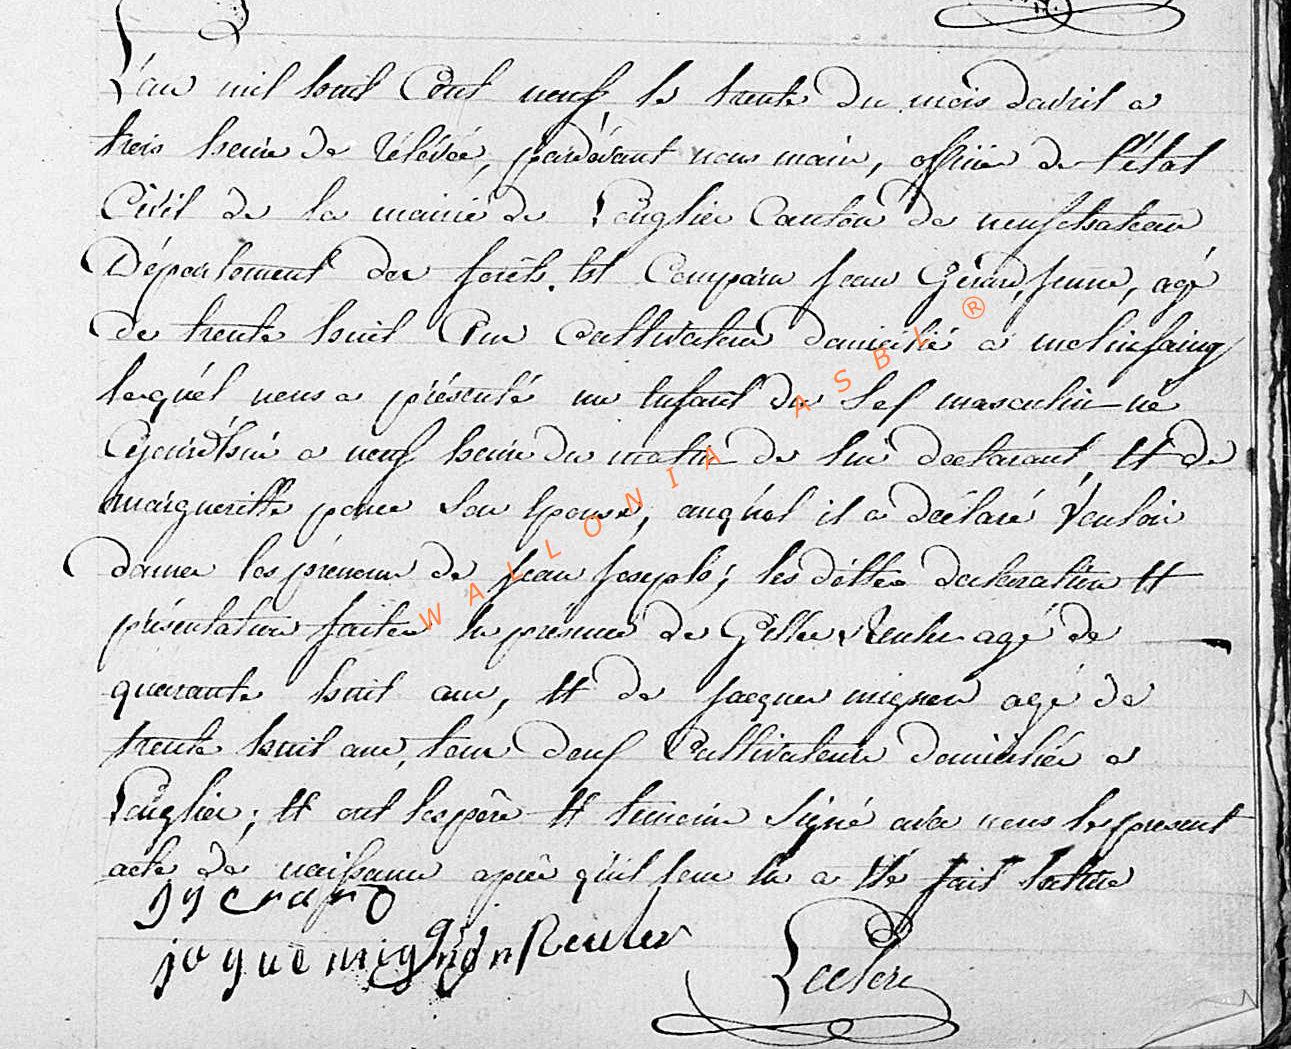 L'an mil huit Cent neuf le trente du mois d'avril a
trois heure de rélévée, pardévant nous maire, officier de l'état
Civil de la mairie de Longlier Canton de neufchateau
Département des forêts. Est Comparu jean Gerard, jeune, agé
de trente huit ans Cultivateur domicilié a molinfaing
lequél nous a présenté un Enfant du Sex masculin né
Cejourd'hui a neuf heure du matin de lui déclarant, Et de
margueritte son Epouse, auquél il a déclaré Vouloir
donner les prénom de jean joseph; les dittes déclaration Et
présentation faites En présence de Gille Reuter agé de
quarante huit ans, Et de jacque mignon agé de
trente huit ans, tous deux Cultivateurs domiciliés a
Longlier; Et ont les père Et temoins Signé avec nous le present
acte de naissance après qu'il leur En a Eté fait lecture
jaque mignon g Reuter
Leclerc
WALLONIA ASBL ®